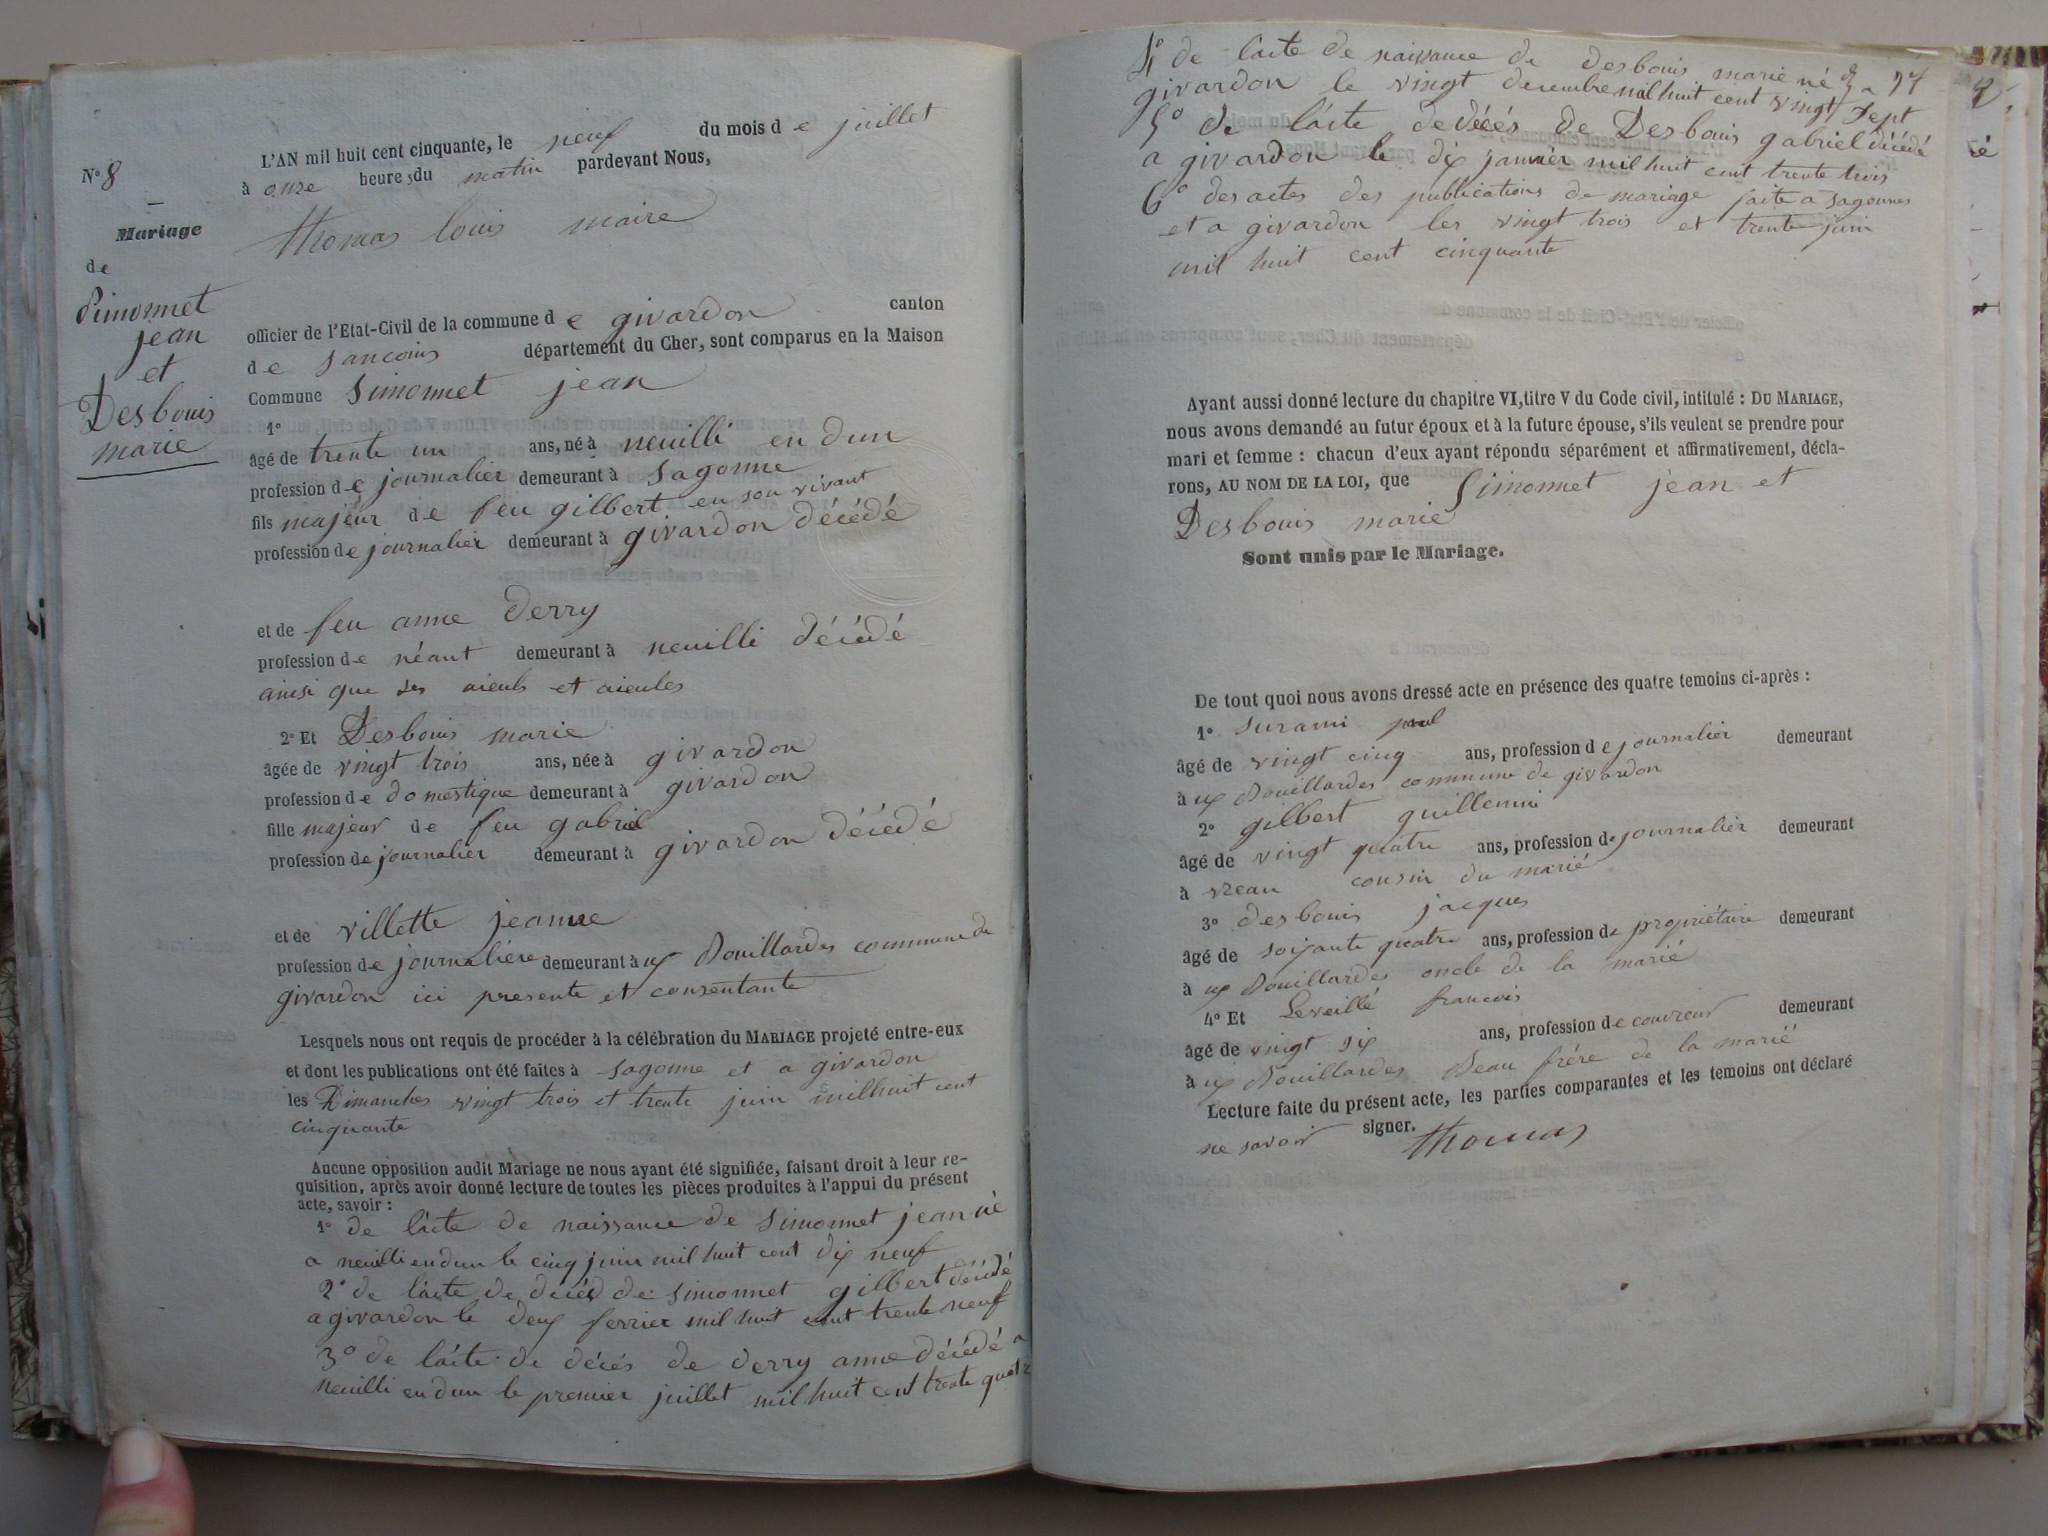 N° 8
Mariage
de
Simonnet
jean
et
Desbouis
marie
L'AN mil huit cent cinquante, le neuf du mois de juillet
à onze heures du matin pardevant Nous,
thomas louis maire
officier de l'Etat-Civil de la commune de givardon canton
de Sancoins département du Cher, sont comparus en la Maison
Commune Simonnet jean
1°
âgé de trente un ans, né à neuilli en dun
profession de journalier demeurant à Sagonne
fils majeur de feu gilbert en son vivant
profession de journalier demeurant à givardon décédé
et de feu anne Derry
profession de néant demeurant à neuilli décédé
ainsi que ses aieuls et aieules
2° Et Desbouis marie
âgée de vingt trois ans, née à givardon
profession de domestique demeurant à givardon
fille majeur de feu gabriel
profession de journalier demeurant à givardon décédé
et de villette jeanne
profession de journalière demeurant à ux Bouillardes commune de
givardon ici presente et consentante
Lesquels nous ont requis de procéder à la célébration du MARIAGE projeté entre-eux
et dont les publications ont été faites à Sagonne et a givardon
les Dimanches vingt trois et trente juin milhuit cent
cinquante
Aucune opposition audit Mariage ne nous ayant été signifiée, faisant droit à leur re-
quisition, après avoir donné lecture de toutes les pièces produites à l'appui du présent
acte, savoir :
1° de lácte de naissance de Simonnet jean né
a neuilli en dun le cinq juin mil huit cent dix neuf
2° de lácte de décés de Simonnet gilbert décédé
a givardon le deux ferrier mil huit cent trente neuf
3° de lácte de décés de derry anne décédé a
neuilli en dun le premier juillet mil huit cent trente quatre
4° de lácte de naissance de Desbouis marie né a
givardon le vingt decembre mil huit cent vingt Sept
5° de lácte de décés de Desbouis gabriel décédé
a givardon le dix janvier mil huit cent trente trois
6° des actes des publications de mariage faite a Sagonnes
et a givardon les vingt trois et trente juin
mil huit cent cinquante
Ayant aussi donné lecture du chapitre VI, titre V du Code civil, intitulé : DU MARIAGE,
nous avons demandé au futur époux et à la future épouse, s'ils veulent se prendre pour
mari et femme : chacun d'eux ayant répondu séparément et affirmativement, décla-
rons, AU NOM DE LA LOI, que Simonnet jean et
Desbouis marie
Sont unis par le Mariage.
De tout quoi nous avons dressé acte en présence des quatre temoins ci-après :
1° Surami paul
âgé de vingt cinq ans, profession de journalier demeurant
à ux Bouillardes commune de givardon
2° gilbert guillemin
âgé de vingt quatre ans, profession de journalier demeurant
à vreau cousin du marié
3° desbouis jacques
âgé de soixante quatre ans, profession de propriétaire demeurant
à ux Bouillardes oncle de la marié
4° Et Leveillé francois
âgé de vingt six ans, profession de couvreur demeurant
à ux Bouillardes Beau frére de la marié
Lecture faite du présent acte, les parties comparantes et les temoins ont déclaré
ne savoir signer. thomas